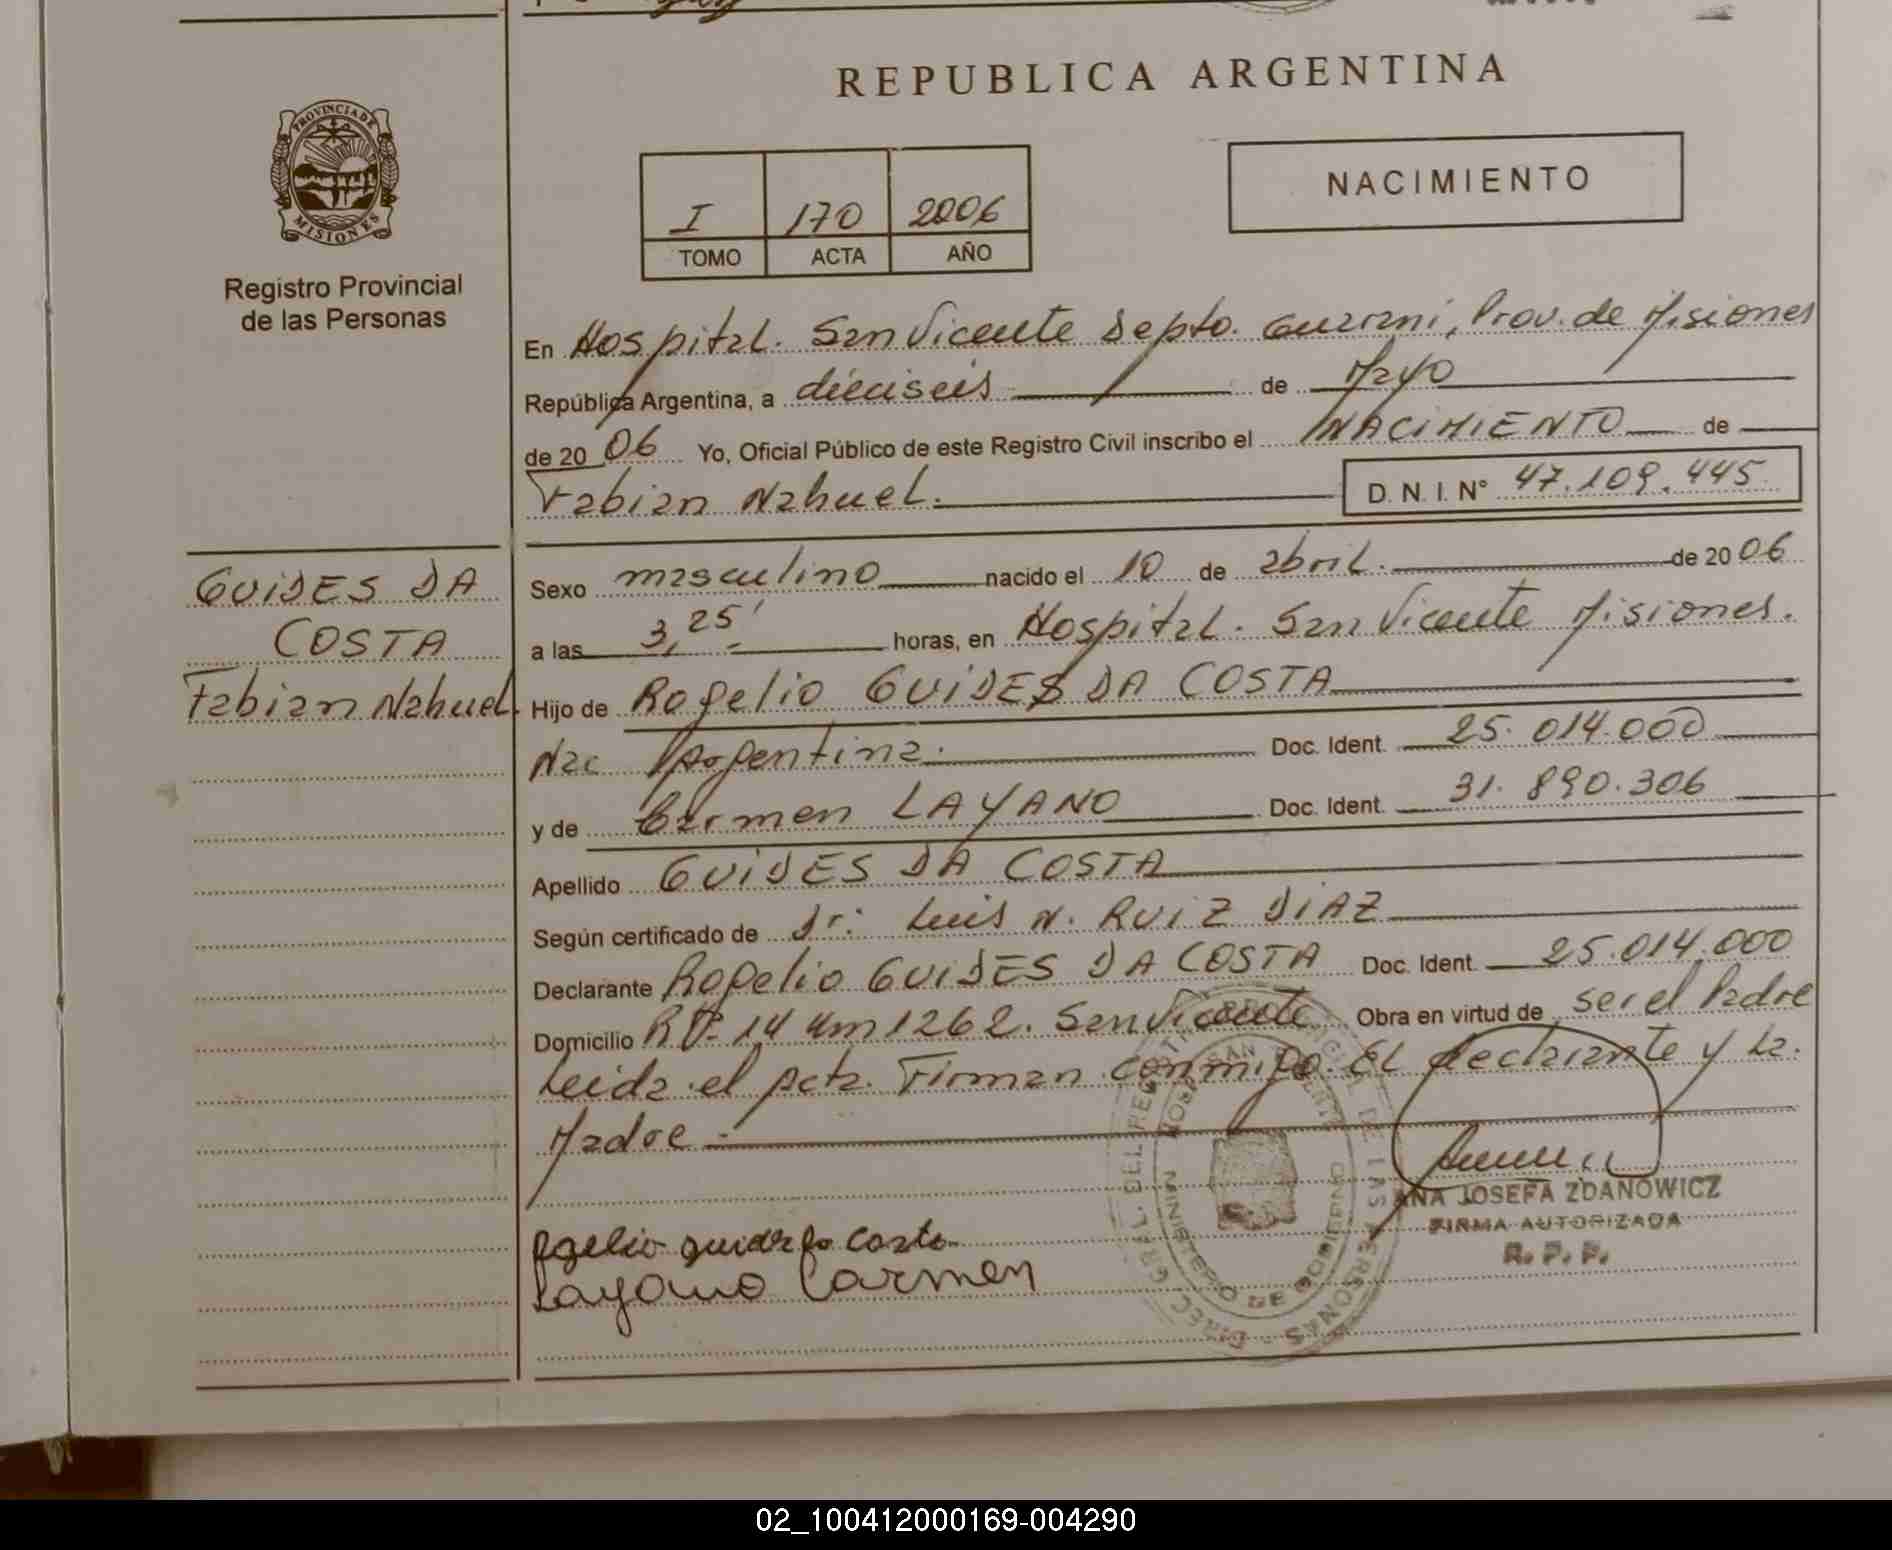 REPUBLICA ARGENTINA
PROVINCIA DE
MISIONES
Registro Provincial
de las Personas
I 170 2006
TOMO ACTA AÑO
NACIMIENTO
En Hospital. San Vicente Depto. Guarani, Prov. de Misiones
República Argentina, a dieciseis de Mayo
de 20 06 Yo, Oficial Público de este Registro Civil inscribo el NACIMIENTO de
Fabian Nahuel.
D. N. I. N° 47.109.445
GUIDES DA
COSTA
Fabian Nahuel.
Sexo masculino nacido el 10 de abril. de 20 06
a las 3,25' horas, en Hospital. San Vicente Misiones.
Hijo de Rogelio GUIDES DA COSTA
Nac Argentina. Doc. Ident. 25.014.000
y de Carmen LAYANO Doc. Ident. 31.890.306
Apellido GUIDES DA COSTA
Según certificado de Dr: Luis N. RUIZ DIAZ
Declarante Rogelio GUIDES DA COSTA Doc. Ident. 25.014.000
Domicilio 14 Km 1262. San Vicente Obra en virtud de ser el Padre
Leida el Acta. Firman conmigo. El declarante y la.
Madre
ANA JOSEFA ZDANOWICZ
FIRMA AUTORIZADA
R. P. P.
Layano Carmen
MINISTERIO DE GOBIERNO
02_100412000169-004290